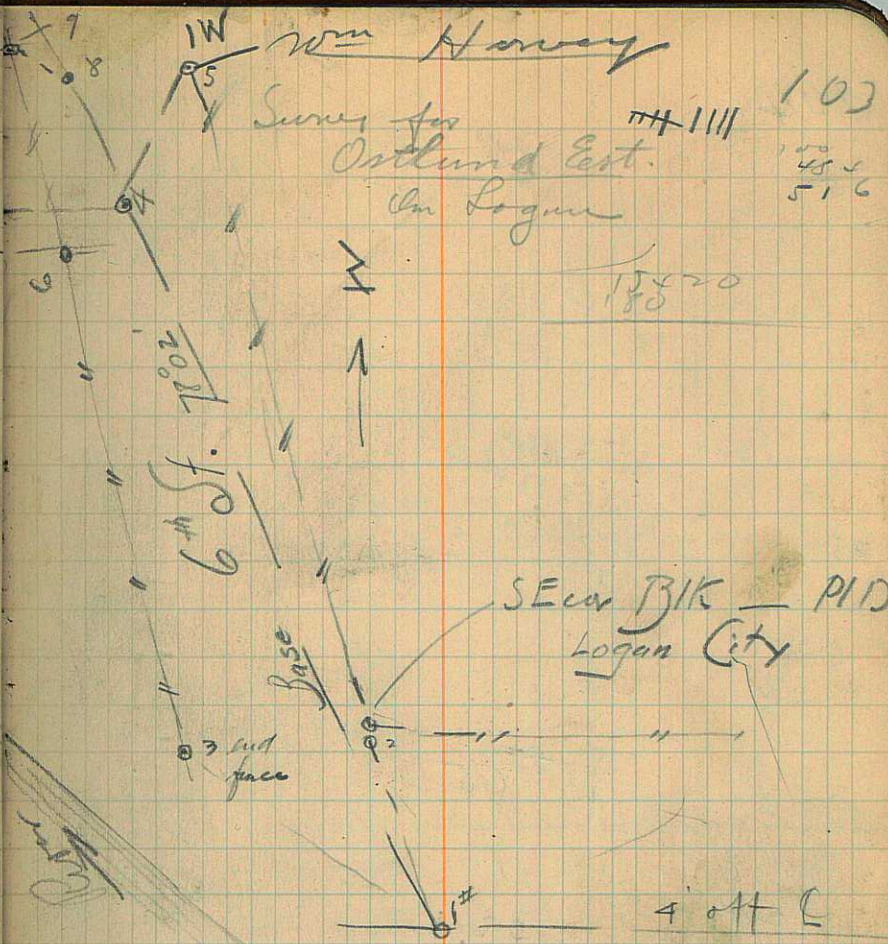 9
8
1W
5
Wm Harvey
103
Survey for
Ostlund Est.
on Logan
100
48 4
51 6
4
6
15420
180
6th St. 78°02'
Base
SE cor Blk — PlD
Logan City
2
3 end
fence
1#
4' off C